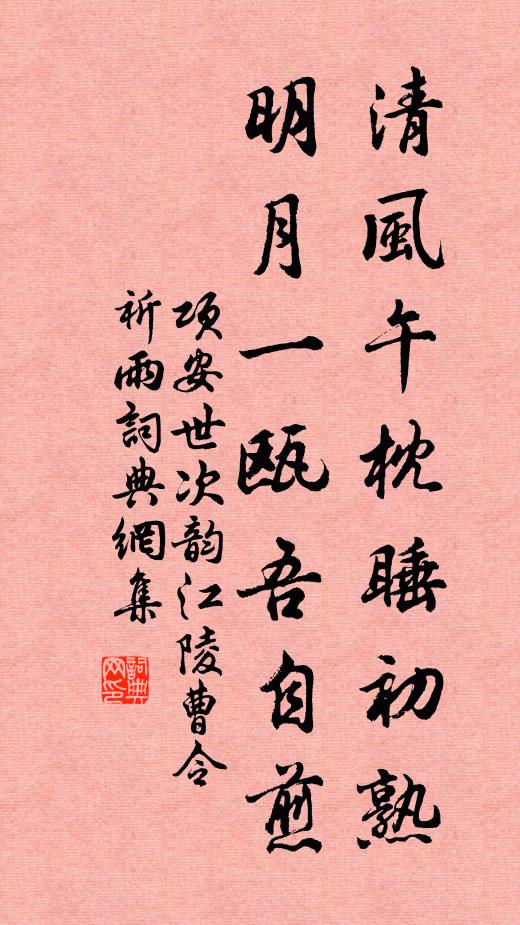 清風午枕睡初熟
明月一甌吾自煎
項安世次韵江陵曹令
祈雨詞典網集
詞典
网印